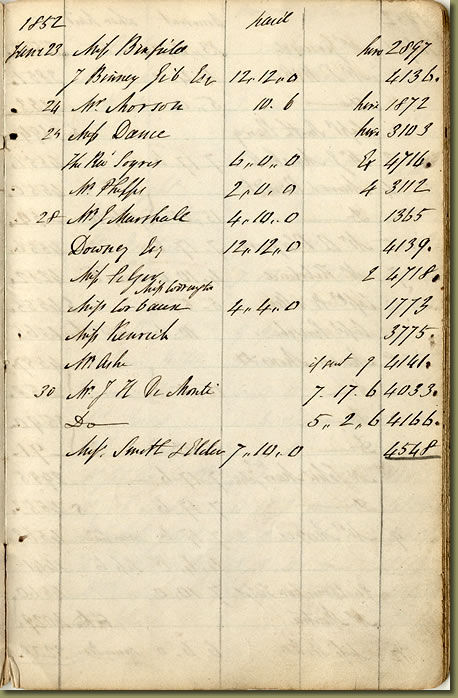 1852 paid
June 23 Miss Binfield hire 2897
J Binney Jib Esq 12,,12,,0 4136.
24 Mr Morson 10.6 hire 1872
25 Miss Dance hire 3103
The Rev 6,,0,,0 Ex 4716.
Mr Phelps 2,,0,,0 4 3112
28 Mr J Marshall 4,,10,,0 1365
Downey Esq 12,,12,,0 4139.
Miss 2 4718.
Miss
Miss 4,,4,,0 1773
Miss Kenrick 3775
Mr Ashe if sent 9 4141.
30 Mr J H De Monti 7.17.6 4033.
Do 5,,2,,6 4166.
Mess. Smith & Elder 7,,10,,0 4548